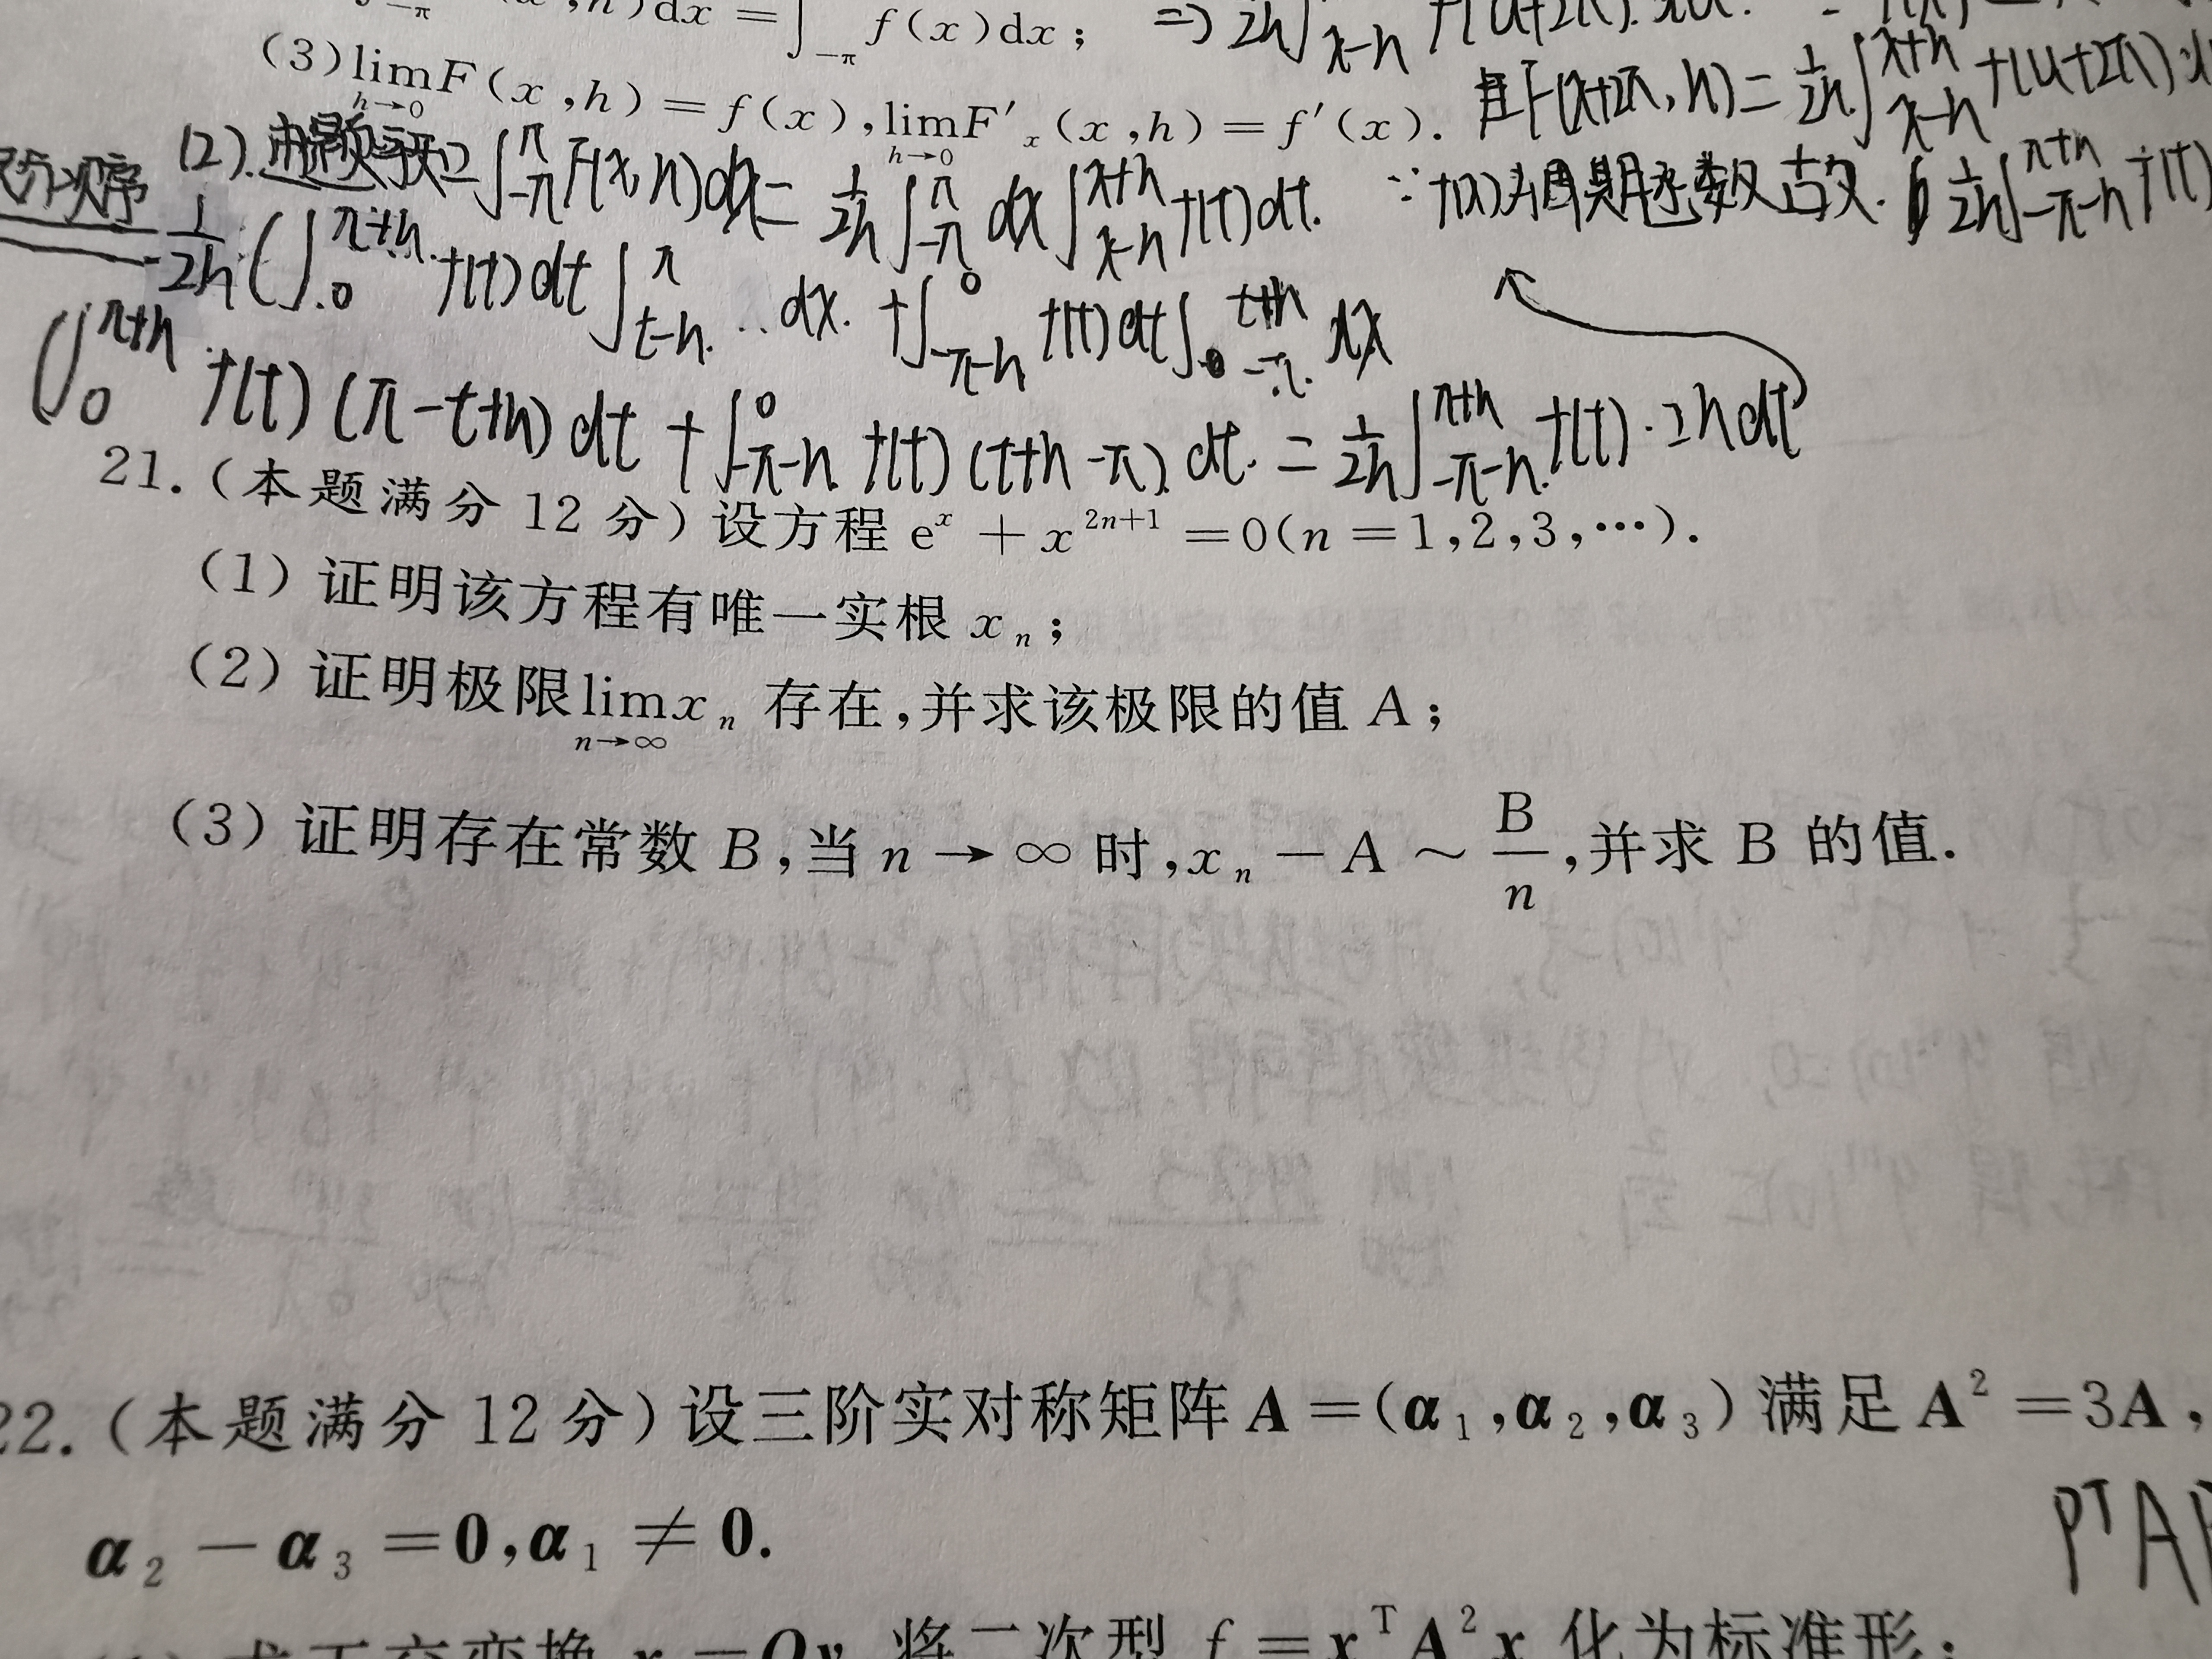 (x,h)dx = ∫_{-π} f(x)dx; ⇒ 1/2h ∫_{x-h} f(u+2π).
(3) lim_{h→0} F(x,h) = f(x), lim_{h→0} F'_x(x,h) = f'(x). 且F(x+2π,h) = 1/2h ∫_{x-h}^{x+h} f(u+2π)
(2). ∫_{-π}^{π} F(x,h)dx = 1/2h ∫_{-π}^{π} dx ∫_{x-h}^{x+h} f(t)dt. ∵ f(x)为周期函数 故. 1/2h ∫_{-π-h}^{π+h} f(t)
次序 1/2h (∫_0^{π+h} f(t)dt ∫_{t-h}^{π} dx. + ∫_{-π-h}^{0} f(t)dt ∫_{-π}^{t+h} dx
(∫_0^{π+h} f(t)(π-t+h)dt + ∫_{-π-h}^{0} f(t)(t+h-π)dt. = 1/2h ∫_{-π-h}^{π+h} f(t)·2hdt
21.(本题满分 12 分)设方程 e^x + x^{2n+1} = 0(n = 1,2,3,…).
(1) 证明该方程有唯一实根 x_n;
(2) 证明极限 lim_{n→∞} x_n 存在,并求该极限的值 A;
(3) 证明存在常数 B,当 n → ∞ 时,x_n − A ~ B/n,并求 B 的值.
22.(本题满分 12 分)设三阶实对称矩阵 A = (α_1,α_2,α_3) 满足 A^2 = 3A,
α_2 − α_3 = 0,α_1 ≠ 0.
P^T A
求正交变换 x = Qy 将二次型 f = x^T A^2 x 化为标准形;